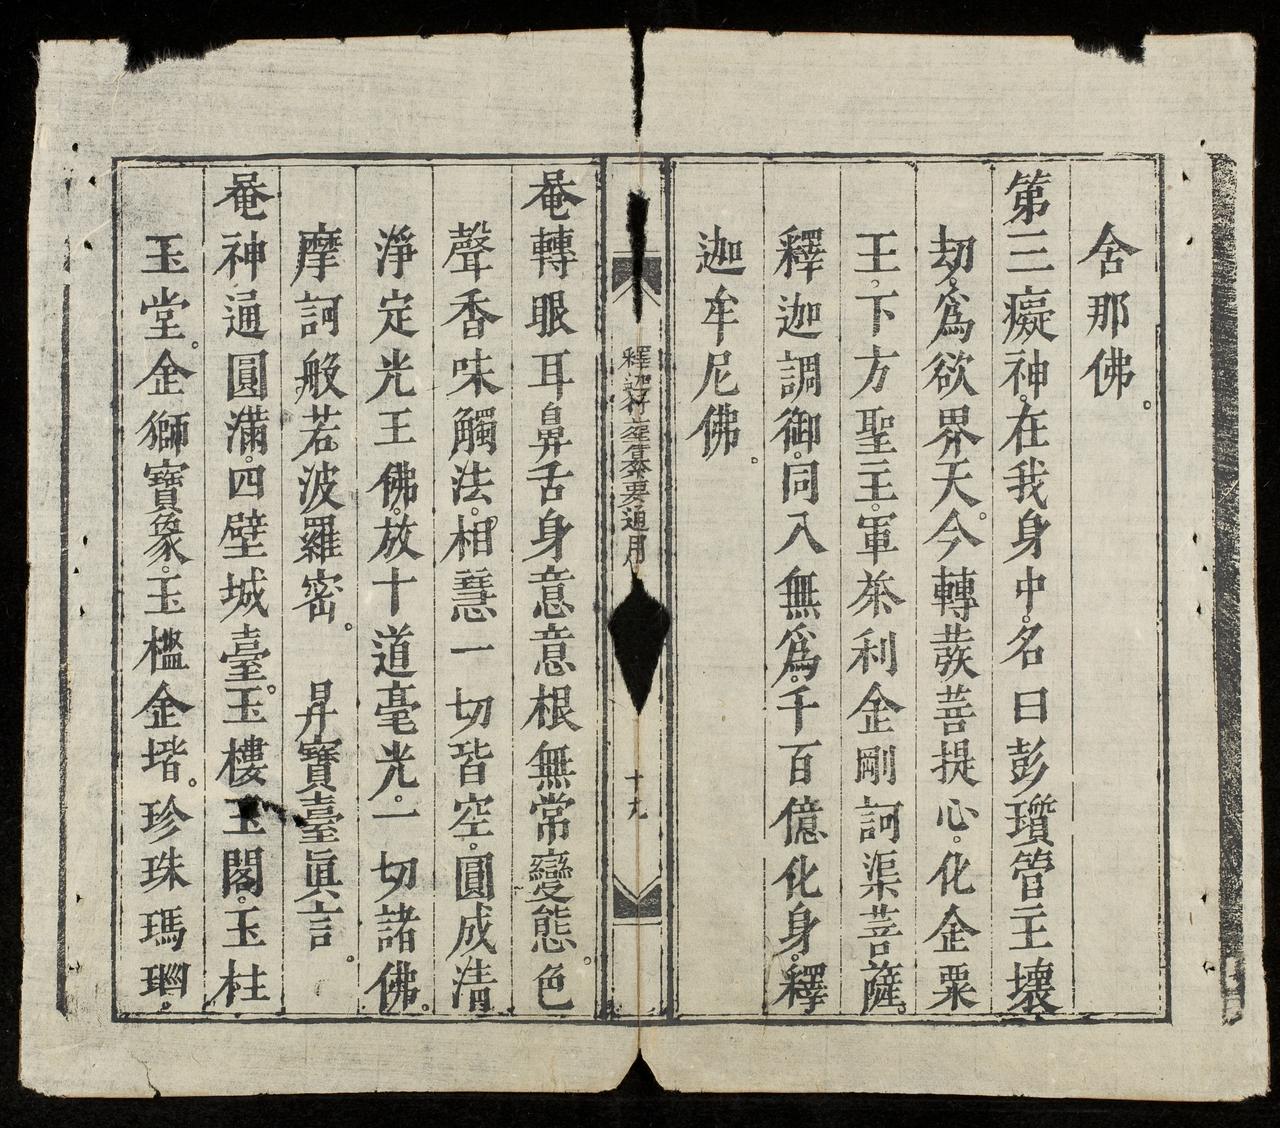 舍那佛。
第三癡神。在我身中。名曰彭瓆管主壞
劫。爲欲界天。今轉發菩提心。化企粟
王。下方聖主。軍茶利金剛訶渠菩薩。
釋迦調御。同入無爲。千百億化身。釋
迦牟尼佛。
釋迦 要通用
十九
菴轉眼耳鼻舌身意意根無常變態。色
聲香味觸法。相慧一切皆空。圓成清
淨定光王佛。放十道毫光。一切諸佛。
摩訶般若波羅密。　昇寶臺眞言。
菴神通圓滿。四壁城臺。玉樓玉閣。玉柱
玉堂。金獅寶象。玉檻金堦。珍珠瑪瑙。